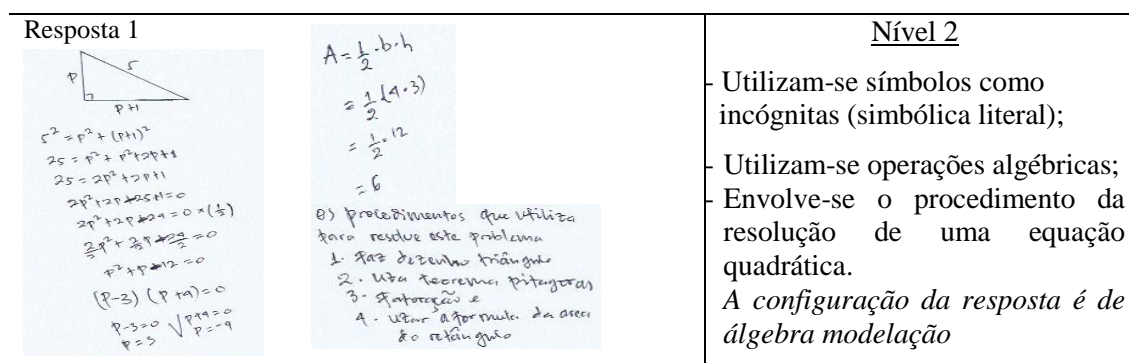 Resposta 1
P
5
P+1
5² = p² + (p+1)²
25 = p² + p²+2p+1
25 = 2p²+2p+1
2p²+2p-25+1=0
2p²+2p-24=0 × (½)
p²+p-12=0
(P-3) (P+4)=0
P-3=0 √ P+4=0
P=3 P=-4
A = ½ . b . h
= ½ (4 . 3)
= ½ . 12
= 6
Os procedimentos que utiliza
para resolve este problema
1. Faz dezenho triângulo
2. Uza teorema pitagoras
3. Fatoração e
4. Uzar a formula da area
do retângulo
Nível 2
- Utilizam-se símbolos como
incógnitas (simbólica literal);
- Utilizam-se operações algébricas;
- Envolve-se o procedimento da
resolução de uma equação
quadrática.
A configuração da resposta é de
álgebra modelação